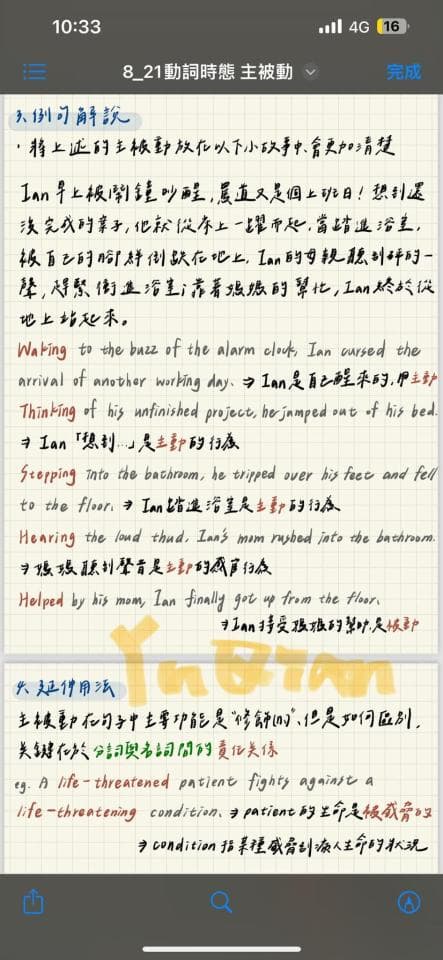 10:33
4G 16
8_21動詞時態 主被動
完成
3.例句解說
・將上述的主被動放在以下小故事中,會更加清楚
Ian早上被鬧鐘吵醒,罵道又是個上班日!想到還
沒完成的案子,他就從床上一躍而起,當踏進浴室,
被自己的腳絆倒趴在地上,Ian的母親聽到砰的一
聲,趕緊衝進浴室;靠著媽媽的幫忙,Ian終於從
地上站起來。
Waking to the buzz of the alarm clock, Ian cursed the
arrival of another working day. ⇒ Ian是自己醒來的,用主動
Thinking of his unfinished project, he jumped out of his bed.
⇒ Ian「想到...」是主動的行為
Stepping into the bathroom, he tripped over his feet and fell
to the floor. ⇒ Ian踏進浴室是主動的行為
Hearing the loud thud, Ian's mom rushed into the bathroom.
⇒媽媽聽到聲音是主動的感官行為
Helped by his mom, Ian finally got up from the floor.
⇒Ian接受媽媽的幫助是被動
4.延伸用法
主被動在句子中主要功能是"修飾(n)",但是如何區別,
關鍵在於分詞與名詞間的責任關係
eg. A life-threatened patient fights against a
life-threatening condition. ⇒ patient的生命是被威脅的
⇒ condition指某種威脅到病人生命的狀況